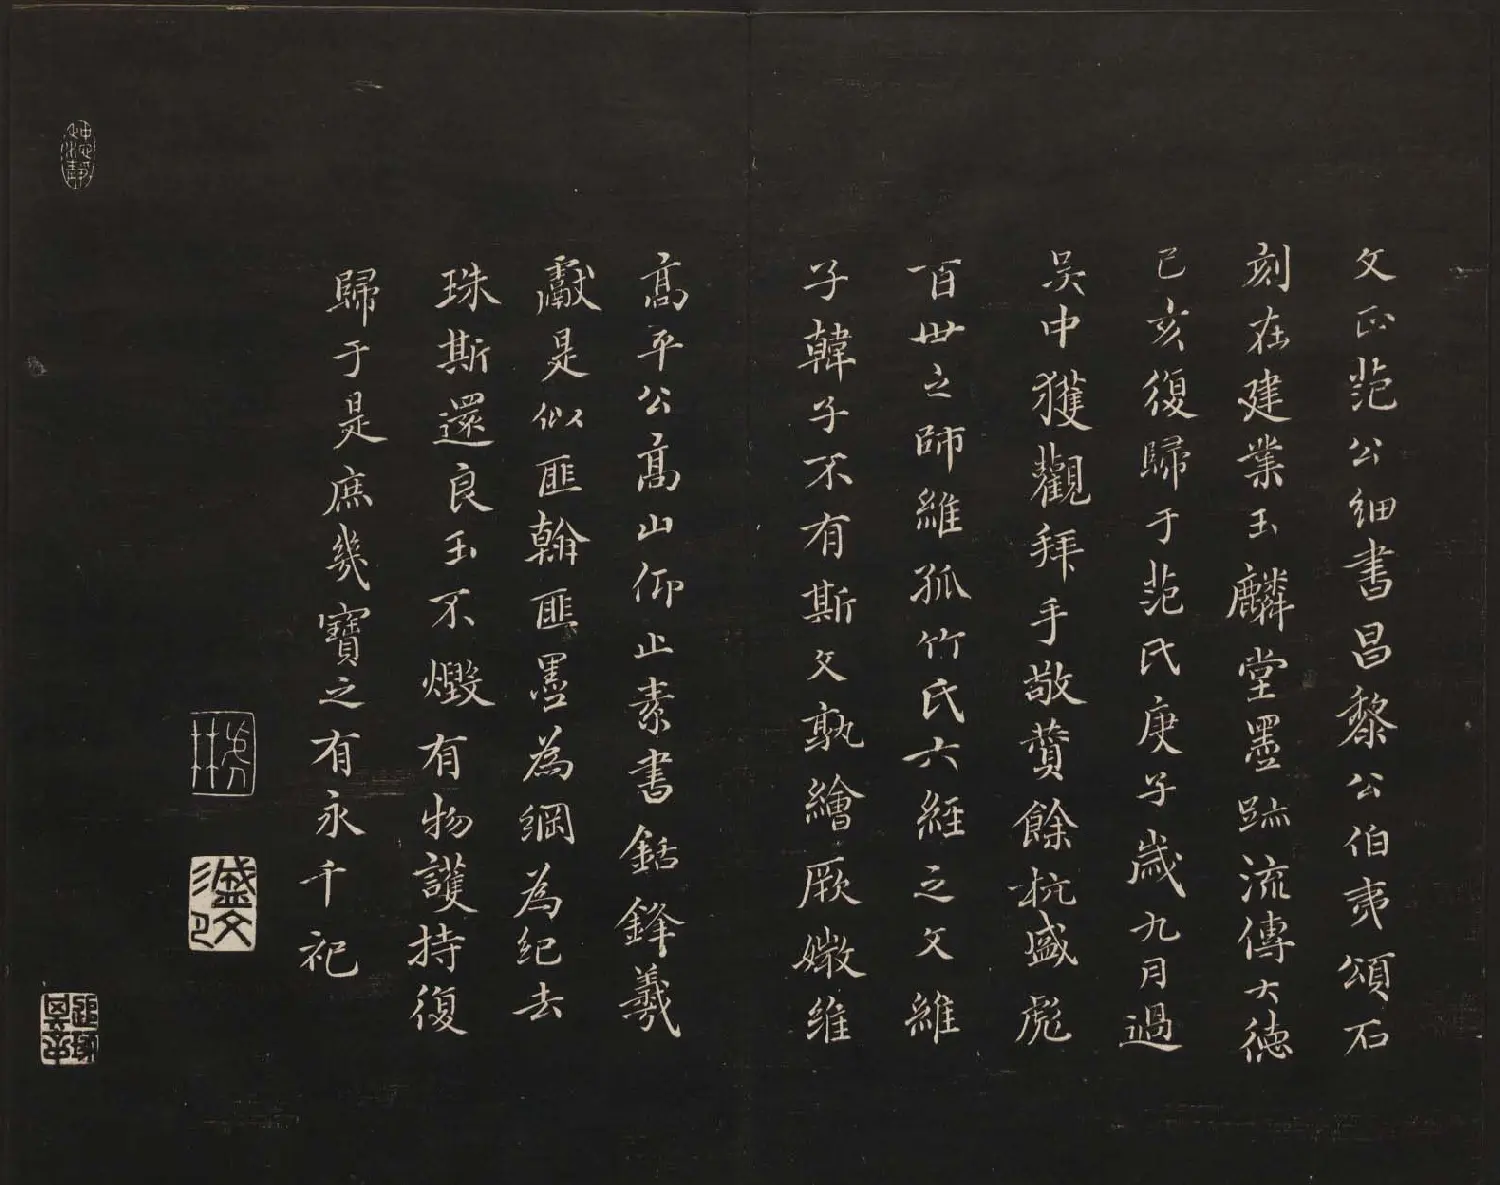 文正范公細書昌黎公伯夷頌石
刻在建業玉麟堂墨跡流傳大德
己亥復歸于范氏庚子歲九月過
吳中獲觀拜手敬贊餘杭盛彪
百世之師維孤竹氏六經之文維
子韓子不有斯文孰繪厥媺維
高平公高山仰止素書銛鋒羲
獻是似匪翰匪墨為綱為紀去
珠斯還良玉不燬有物護持復
歸于是庶幾寶之有永千祀
盛文